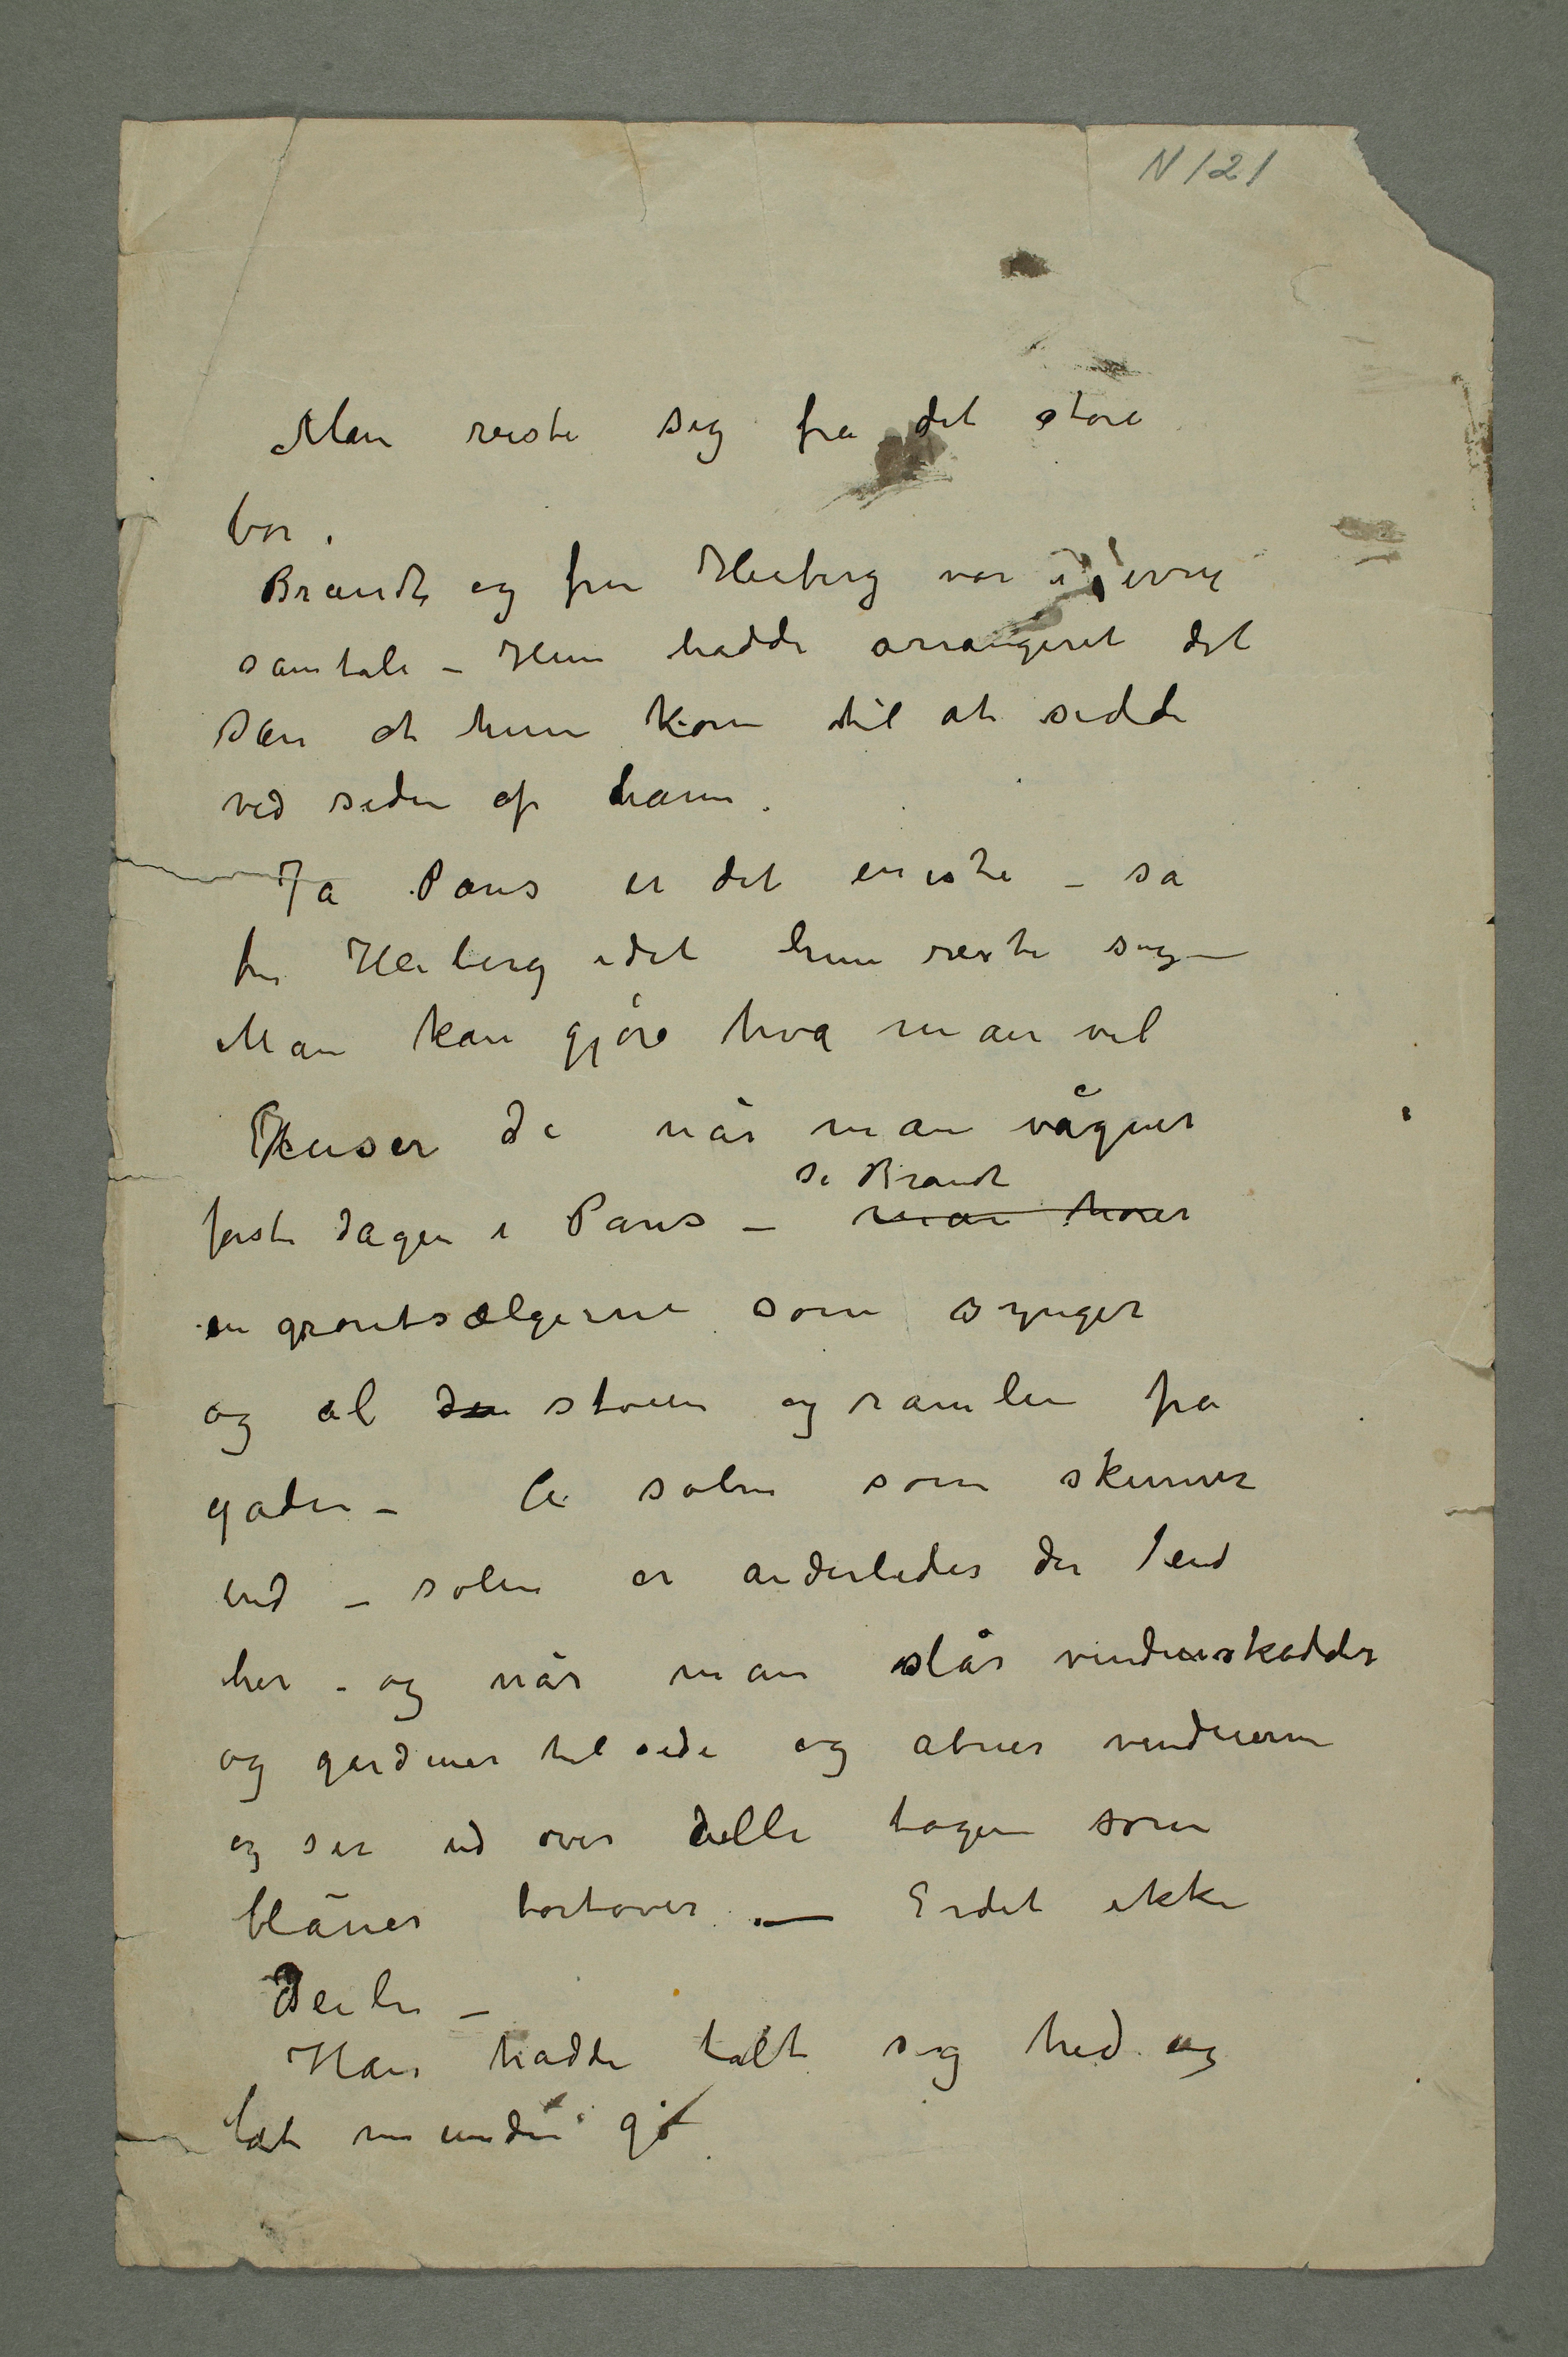 N 121
Man reiste sig fra det store
bor.
Brandt og fru Heiberg var i ivrig
samtale – Hun hadde arrangeret det
san at hun kom til at sidde
ved siden af ham.
Ja Paris er det eneste – sa
fru Heiberg idet hun reiste sig –
Man kan gjøre hva man vil
Husser De når man vågner
første dagen i Paris – man hører
sa Brandt
en grøntsælgerne som synger
og al den støien og ramlen fra
gaden – Å solen som skinner
ind – solen er anderledes der end
her – og når man slår vindusskodder
og gardiner tilside og åbner vinduerne
og ser ud over alle tagene som
blåner bortover. – Er det ikke
Deilig –
Han hadde talt sig hed og
lot munden gå